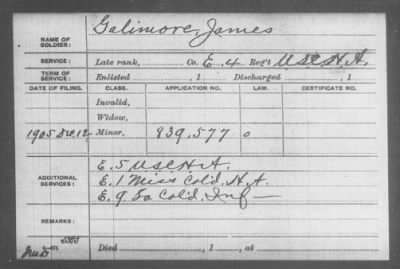 Galimore, James
NAME OF SOLDIER:
SERVICE: Late rank, Co. E. 4 Reg't U S C H. A.
TERM OF SERVICE: Enlisted , 1 Discharged , 1
DATE OF FILING. CLASS. APPLICATION NO. LAW. CERTIFICATE NO.
Invalid,
Widow,
1905 Dec. 12 Minor, 839.577 0
ADDITIONAL SERVICES:
E. 5 U S C H. A.
E. 1 Miss Col'd. H. A.
E. 9 La Col'd. Inf
REMARKS:
Died , 1 , at